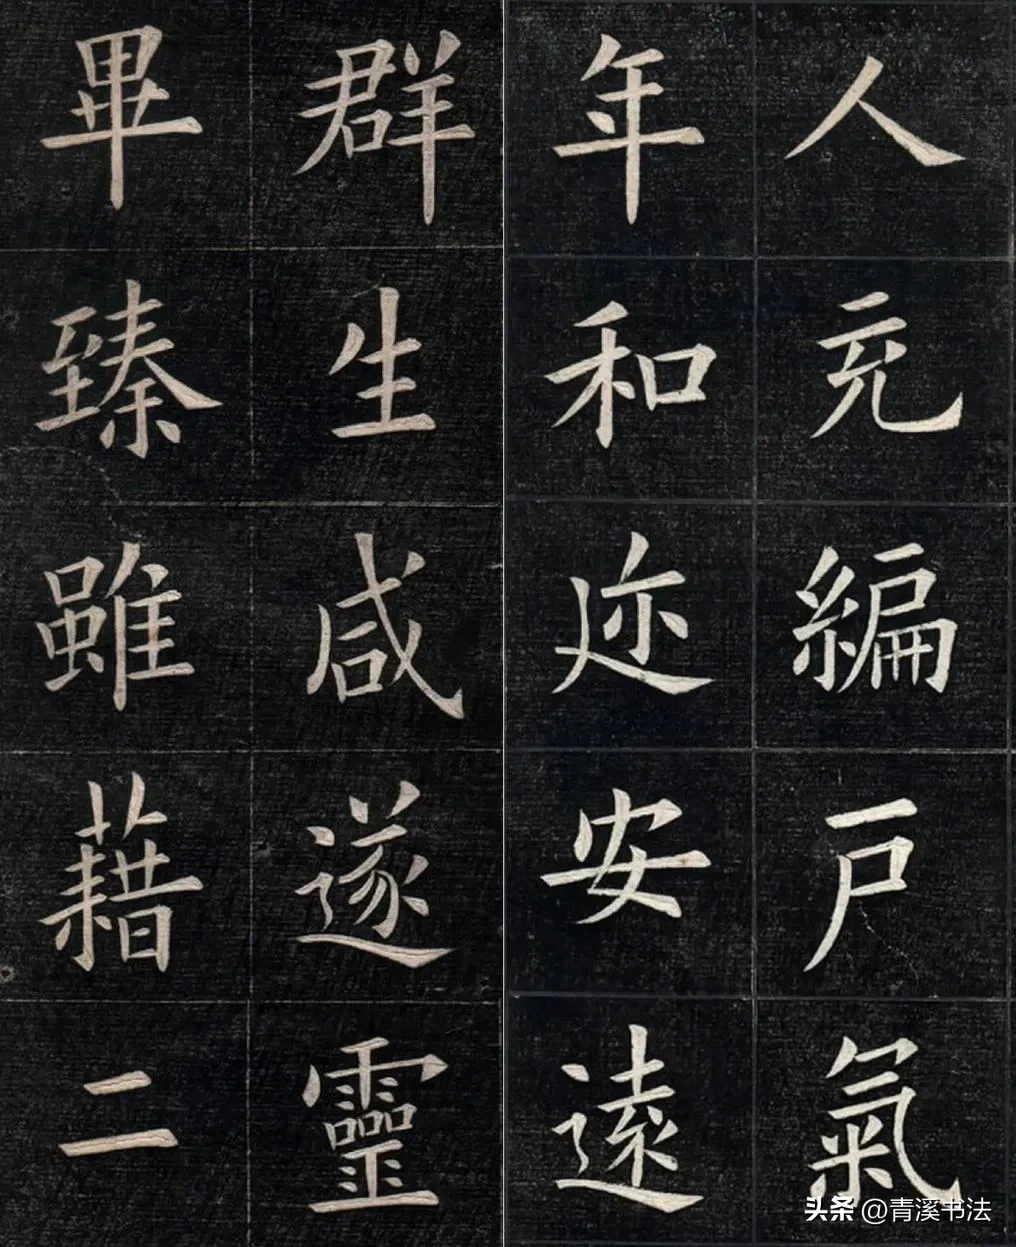 人充編戸氣
年和迩安遠
群生咸遂靈
畢臻雖藉二
头条 @青溪书法